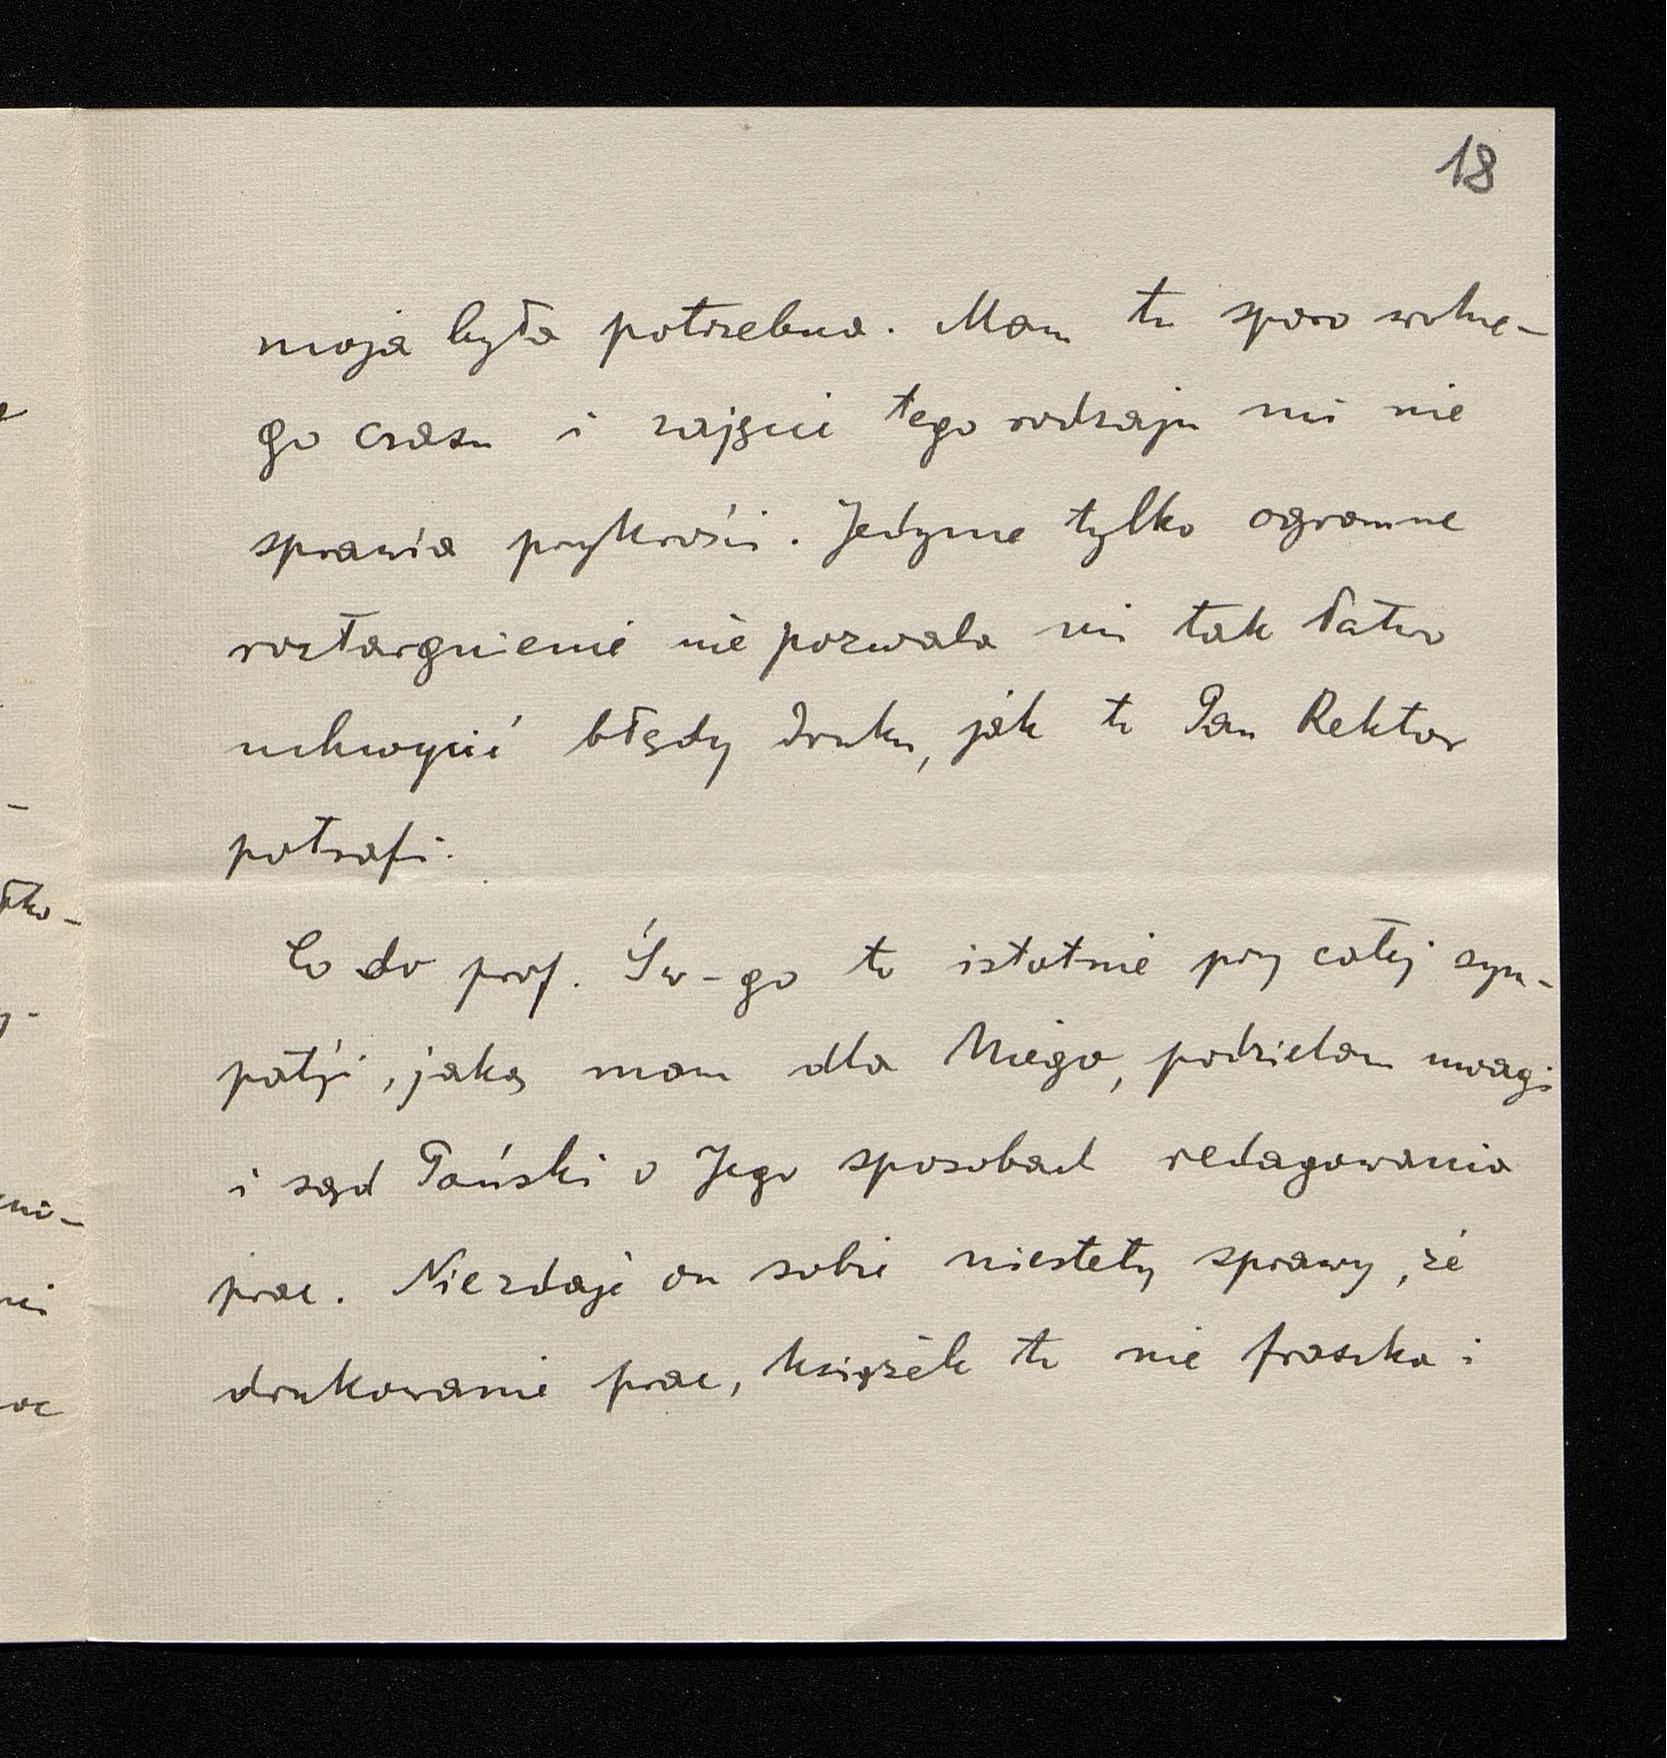 18
moja była potrzebna. Mam tu sporo wolne-
go czasu i zajęcie tego rodzaju mi nie
sprawia przykrości. Jedynie tylko ogromne
roztargnienie nie pozwala mi tak łatwo
uchwycić błędy druku, jak to Pan Rektor
potrafi.
Co do prof. Św-go to istotnie przy całej sym-
patji, jaką mam dla Niego, podzielam uwagi
i sąd Pański o Jego sposobach redagowania
prac. Nie zdaje on sobie niestety sprawy, że
drukowanie prac, książek to nie fraszka i